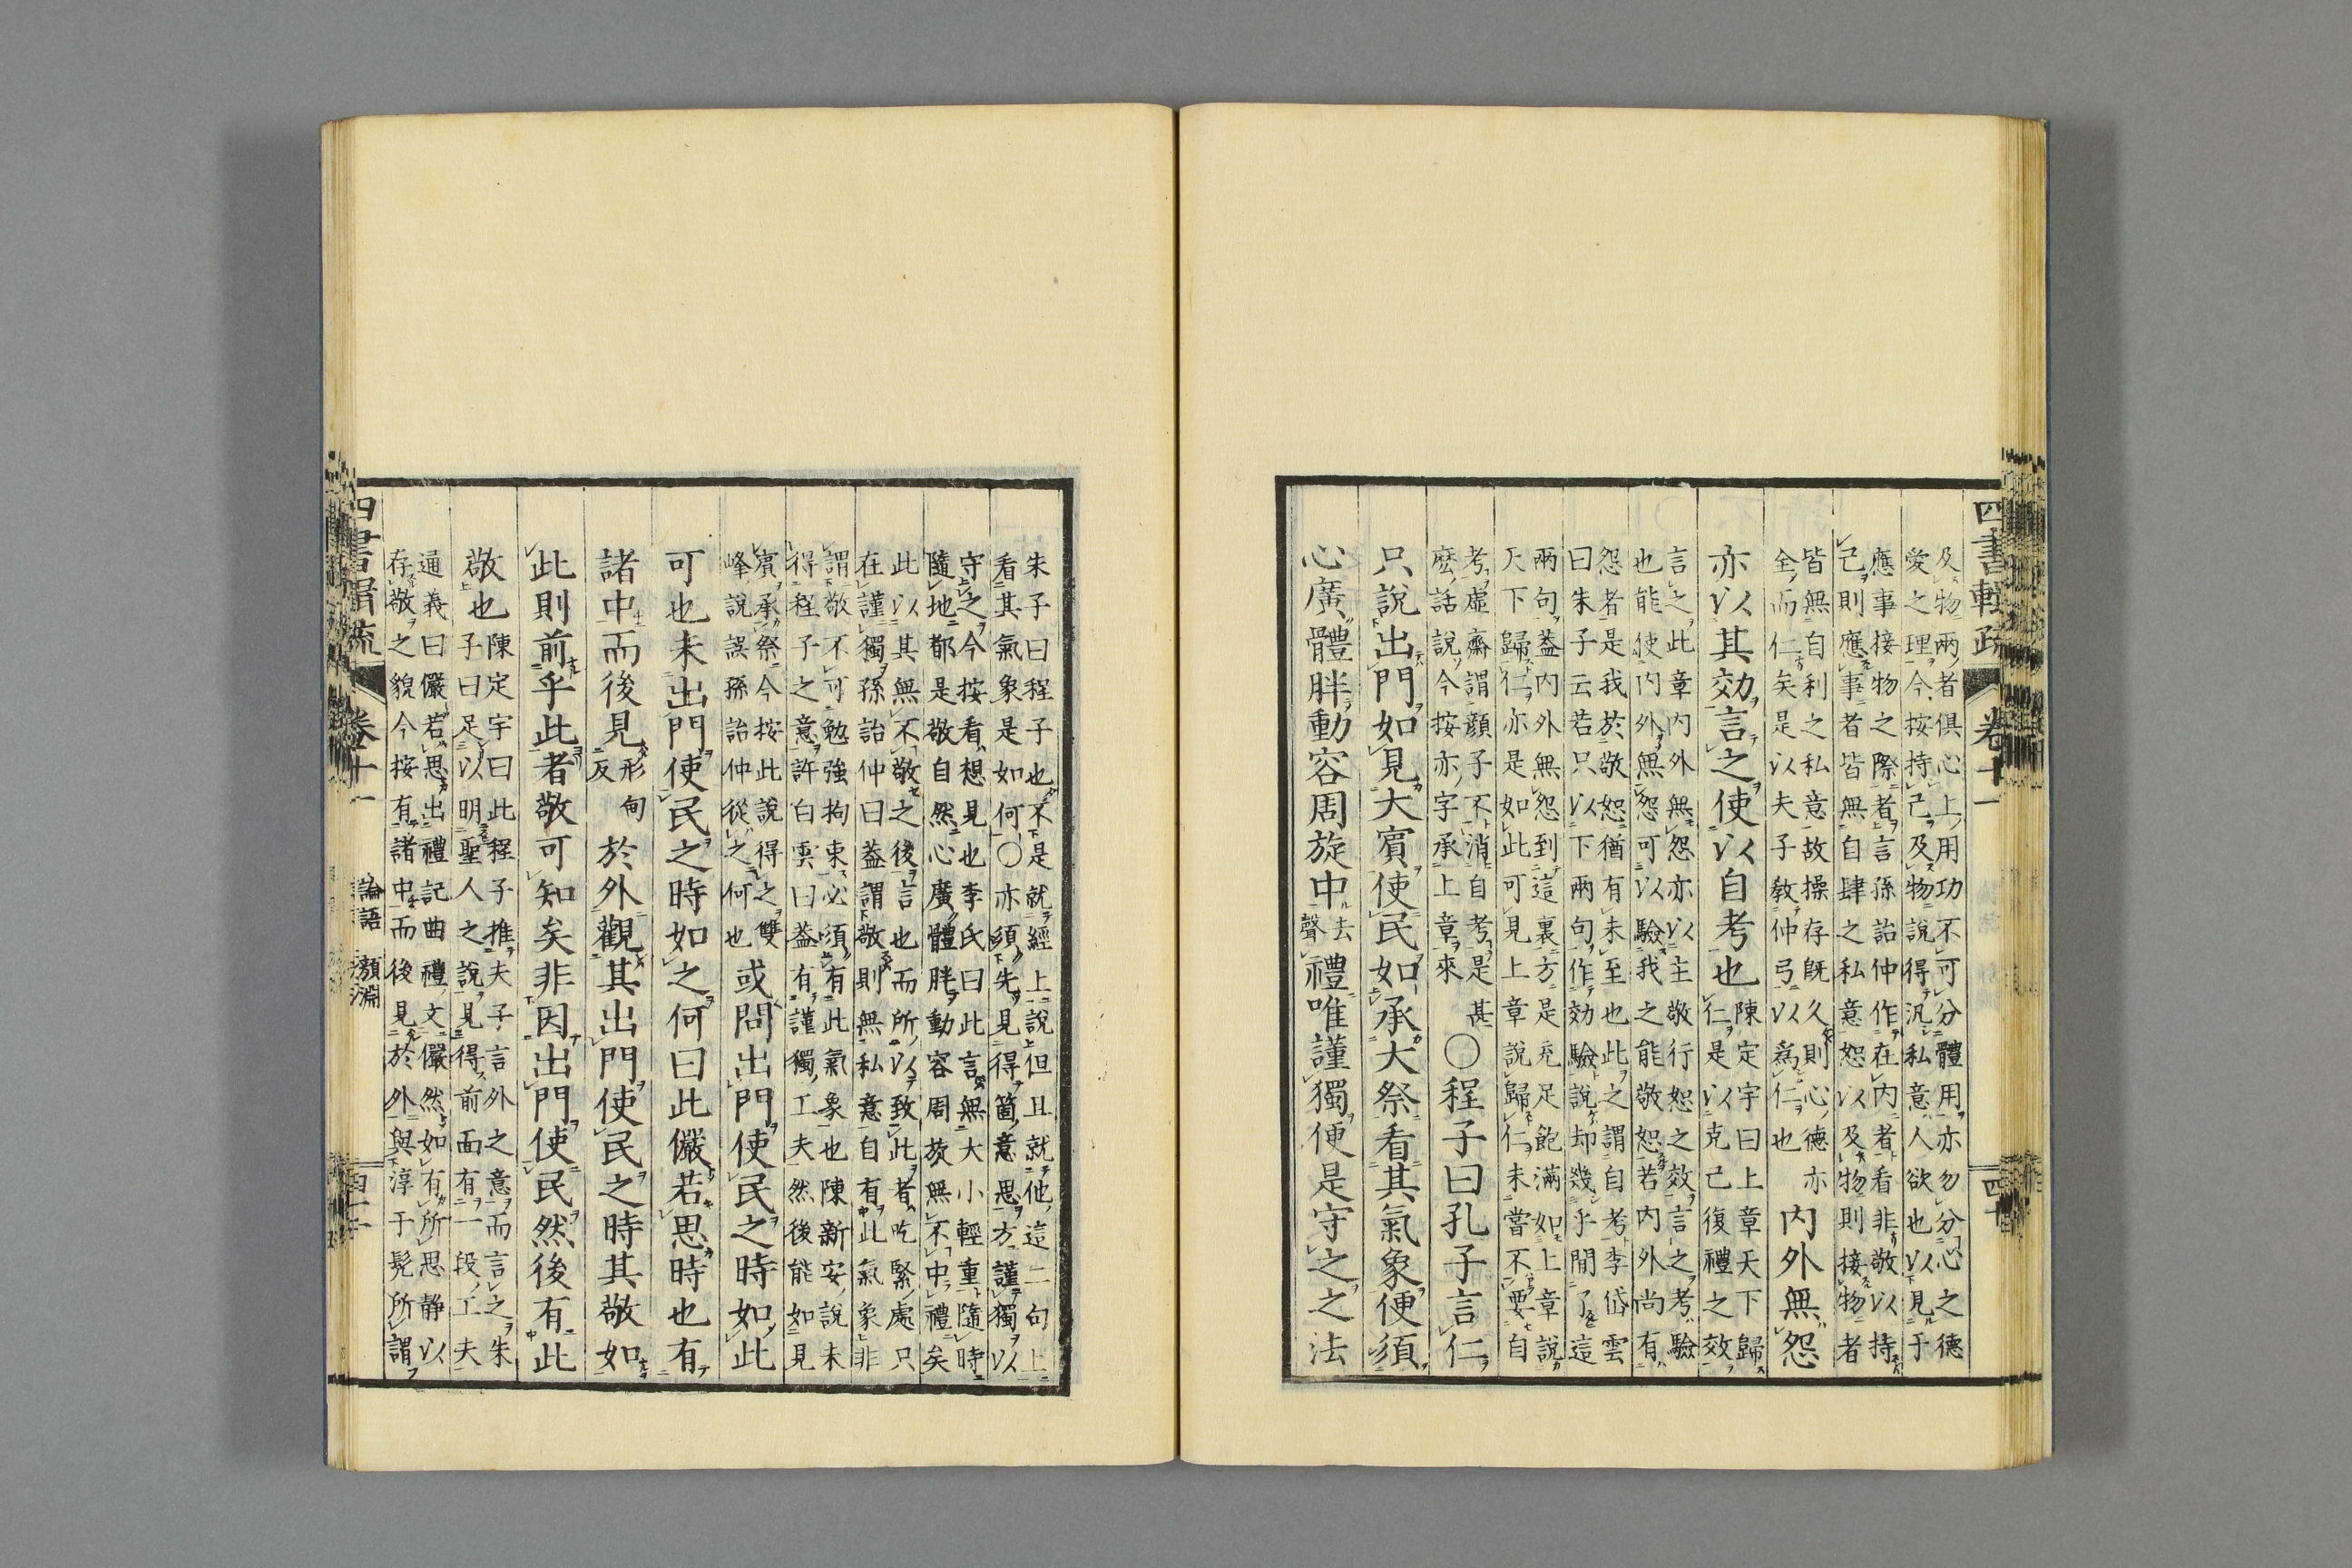 四書輯疏 卷十一 四十
及物兩者俱心上用功不可分體用亦勿分心之德
愛之理今按持己及物說得汎私意人欲也以見于
應事接物之際者言孫詒仲作在內者看非敬以持
己則應事者皆無自肆之私意恕以及物則接物者
皆無自利之私意故操存既久則心德亦
全而仁矣是以夫子教仲弓以爲仁也
內外無怨
亦以其効言之使以自考也
陳定宇曰上章天下歸
仁是以克己復禮之效
言之此章內外無怨亦以主敬行恕之效言之考驗
也能使內外無怨可以驗我之能敬恕若內外尚有
怨者是我於敬恕猶有未至也此之謂自考李岱雲
曰朱子云若只以下兩句作効驗說却幾乎閒了這
兩句蓋內外無怨到這裏方是充足飽滿如上章說
天下歸仁亦是如此可見上章說歸仁未當不要自
考虛齋謂顏子不消自考是甚
麽話說今按亦字承上章來
○程子曰孔子言仁
只說出門如見大賓使民如承大祭看其氣象便須
心廣體胖動容周旋中去聲禮唯謹獨便是守之之法
朱子曰程子也不是就經上說但且就他這二句上
看其氣象是如何○亦須先見得箇意思方謹獨以
守之今按看想見也李氏曰此言無大小輕重隨時
隨地都是敬自然心廣體胖動容周旋無不中禮矣
此以其無不敬之後言也而所以致此者吃緊處只
在謹獨孫詒仲曰蓋謂敬則無私意自有此氣象非
謂敬不可勉強拘束必須有此氣象也陳新安說未
得程子之意許白雲曰蓋有謹獨工夫然後能如見
賓承祭今按此說得之雙
峰說誤孫詒仲從之何也
或問出門使民之時如此
可也未出門使民之時如之何曰此儼若思時也有
諸中而後見形甸反於外觀其出門使民之時其敬如
此則前乎此者敬可知矣非因出門使民然後有此
敬也
陳定宇曰此程子推夫子言外之意而言之朱
子曰足以明聖人之說見得前面有一段工夫
通義曰儼若思出禮記曲禮文儼然如有所思靜以
存敬之貌今按有諸中而後見於外與淳于髡所謂
四書輯疏 卷十一 論語 顏淵